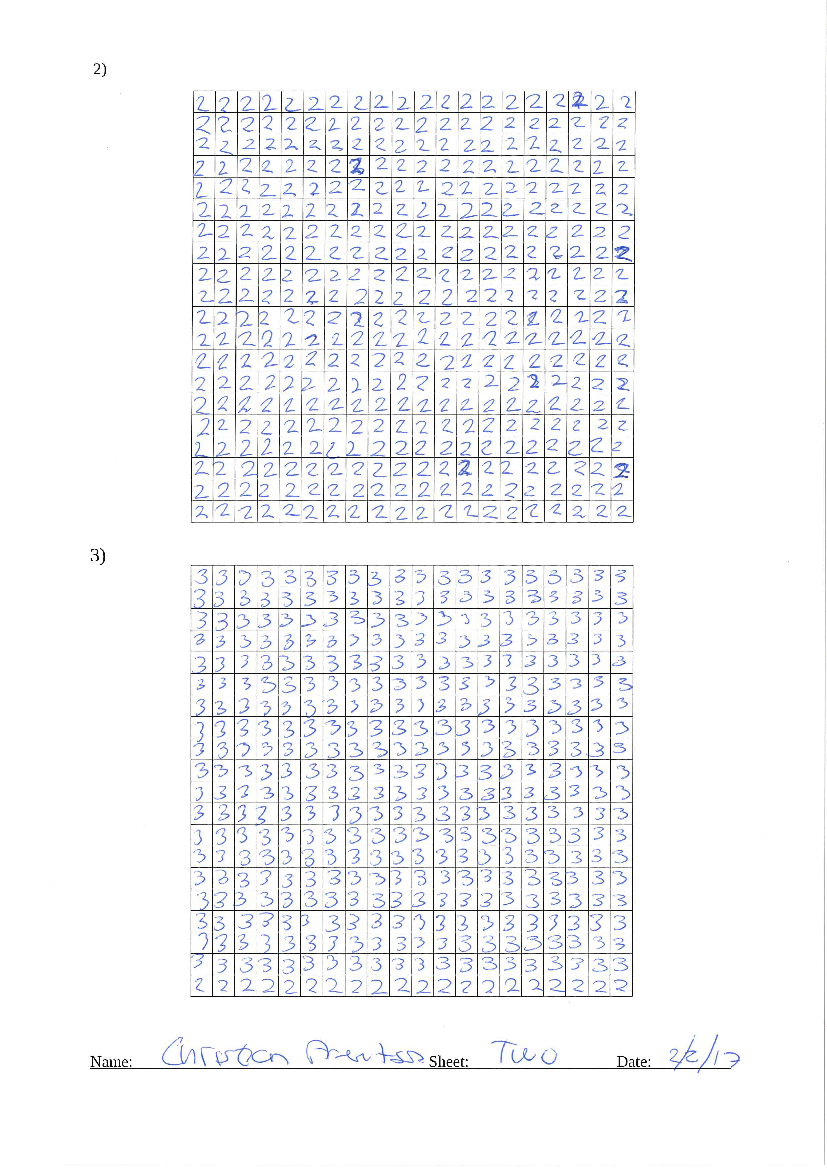 2)
2 2 2 2 2 2 2 2 2 2 2 2 2 2 2 2 2 2 2 2
2 2 2 2 2 2 2 2 2 2 2 2 2 2 2 2 2 2 2 2
2 2 2 2 2 2 2 2 2 2 2 2 2 2 2 2 2 2 2 2
2 2 2 2 2 2 2 2 2 2 2 2 2 2 2 2 2 2 2 2
2 2 2 2 2 2 2 2 2 2 2 2 2 2 2 2 2 2 2 2
2 2 2 2 2 2 2 2 2 2 2 2 2 2 2 2 2 2 2 2
2 2 2 2 2 2 2 2 2 2 2 2 2 2 2 2 2 2 2 2
2 2 2 2 2 2 2 2 2 2 2 2 2 2 2 2 2 2 2 2
2 2 2 2 2 2 2 2 2 2 2 2 2 2 2 2 2 2 2 2
2 2 2 2 2 2 2 2 2 2 2 2 2 2 2 2 2 2 2 2
2 2 2 2 2 2 2 2 2 2 2 2 2 2 2 2 2 2 2 2
2 2 2 2 2 2 2 2 2 2 2 2 2 2 2 2 2 2 2 2
2 2 2 2 2 2 2 2 2 2 2 2 2 2 2 2 2 2 2 2
2 2 2 2 2 2 2 2 2 2 2 2 2 2 2 2 2 2 2 2
2 2 2 2 2 2 2 2 2 2 2 2 2 2 2 2 2 2 2 2
2 2 2 2 2 2 2 2 2 2 2 2 2 2 2 2 2 2 2 2
2 2 2 2 2 2 2 2 2 2 2 2 2 2 2 2 2 2 2 2
2 2 2 2 2 2 2 2 2 2 2 2 2 2 2 2 2 2 2 2
2 2 2 2 2 2 2 2 2 2 2 2 2 2 2 2 2 2 2 2
2 2 2 2 2 2 2 2 2 2 2 2 2 2 2 2 2 2 2 2
3)
3 3 3 3 3 3 3 3 3 3 3 3 3 3 3 3 3 3 3 3
3 3 3 3 3 3 3 3 3 3 3 3 3 3 3 3 3 3 3 3
3 3 3 3 3 3 3 3 3 3 3 3 3 3 3 3 3 3 3 3
3 3 3 3 3 3 3 3 3 3 3 3 3 3 3 3 3 3 3 3
3 3 3 3 3 3 3 3 3 3 3 3 3 3 3 3 3 3 3 3
3 3 3 3 3 3 3 3 3 3 3 3 3 3 3 3 3 3 3 3
3 3 3 3 3 3 3 3 3 3 3 3 3 3 3 3 3 3 3 3
3 3 3 3 3 3 3 3 3 3 3 3 3 3 3 3 3 3 3 3
3 3 3 3 3 3 3 3 3 3 3 3 3 3 3 3 3 3 3 3
3 3 3 3 3 3 3 3 3 3 3 3 3 3 3 3 3 3 3 3
3 3 3 3 3 3 3 3 3 3 3 3 3 3 3 3 3 3 3 3
3 3 3 3 3 3 3 3 3 3 3 3 3 3 3 3 3 3 3 3
3 3 3 3 3 3 3 3 3 3 3 3 3 3 3 3 3 3 3 3
3 3 3 3 3 3 3 3 3 3 3 3 3 3 3 3 3 3 3 3
3 3 3 3 3 3 3 3 3 3 3 3 3 3 3 3 3 3 3 3
3 3 3 3 3 3 3 3 3 3 3 3 3 3 3 3 3 3 3 3
3 3 3 3 3 3 3 3 3 3 3 3 3 3 3 3 3 3 3 3
3 3 3 3 3 3 3 3 3 3 3 3 3 3 3 3 3 3 3 3
3 3 3 3 3 3 3 3 3 3 3 3 3 3 3 3 3 3 3 3
2 2 2 2 2 2 2 2 2 2 2 2 2 2 2 2 2 2 2 2
Name: Christian Sheet: Two Date: 2/2/17